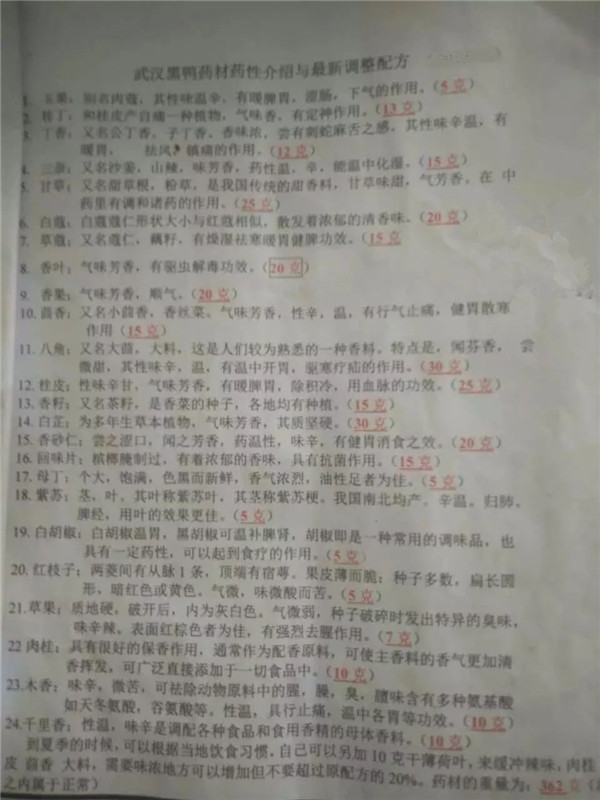 武汉黑鸭药材药性介绍与最新调整配方
1. 玉果：别名肉蔻，其性味温辛，有暖脾胃，涩肠，下气的作用。(5 克)
2. 桂丁：和桂皮产自痛一种植物，气味香，有定神作用。(13 克)
3. 丁香：又名公丁香，子丁香，香味浓，尝有刺蛇麻舌之感，其性味辛温，有
暖胃， 祛风，镇痛的作用。(12 克)
4. 三奈：又名沙姜，山辣，味芳香，药性温，辛，能温中化湿。(15 克)
5. 甘草：又名甜草根，粉草，是我国传统的甜香料，甘草味甜，气芳香，在 中
药里有调和诸药的作用。(25 克)
6. 白蔻：白蔻蔻仁形状大小与红蔻相似，散发着浓郁的清香味。(20 克)
7. 草蔻：又名蔻仁，藕籽，有燥湿祛寒暖胃健脾功效。(15 克
8. 香叶：气味芳香，有驱虫解毒功效。(20 克)
9. 香果：气味芳香，顺气。(20 克)
10. 茴香：又名小茴香，香丝菜。气味芳香，性辛，温，有行气止痛，健胃散寒
作用 (15 克)
11. 八角：又名大茴，大料，这是人们较为熟悉的一种香料。特点是，闻芬香， 尝
微甜，其性味辛，温，有温中开胃，驱寒疗疝的作用。(30 克)
12. 桂皮：性味辛甘，气味芳香，有暖脾胃，除积冷，用血脉的功效。(25 克)
13. 香籽：又名茶籽，是香菜的种子，各地均有种植。(15 克)
14. 白芷：为多年生草本植物，气味芳香，其质坚硬。(30 克)
15. 香砂仁：尝之涩口，闻之芳香，药温性，味辛，有健胃消食之效。(20 克)
16. 回味片：槟榔腌制过，有着浓郁的香味，具有抗菌作用。(15 克)
17. 母丁：个大，饱满，色黑而新鲜，香气浓烈，油性足者为佳。(5 克)
18. 紫苏：茎，叶，其叶称紫苏叶，其茎称紫苏梗。我国南北均产。辛温。归肺。
脾经，用叶的效果更佳。(5 克)
19. 白胡椒：白胡椒温胃，黑胡椒可温补脾肾，胡椒即是一种常用的调味品，也
具有一定药性，可以起到食疗的作用。(5 克)
20. 红枝子：两菱间有从脉 1 条，顶端有宿萼。果皮薄而脆；种子多数，扁长圆
形，暗红色或黄色。气微，味微酸而苦。(5 克)
21.草果：质地硬，破开后，内为灰白色。气微弱，种子破碎时发出特异的臭味，
味辛辣。表面红棕色者为佳，有强烈去腥作用。(7 克)
22 肉桂：具有很好的保香作用，通常作为配香原料，可使主香料的香气更加清
香挥发，可广泛直接添加于一切食品中。(10 克)
23.木香：味辛，微苦，可祛除动物原料中的腥，臊，臭，膻味含有多种氨基酸
如天冬氨酸，谷氨酸等。性温，具行止痛，温中各胃等功效。(10 克)
24.千里香：性温，味辛是调配各种食品和食用香精的母体香料。(10 克)
到夏季的时候，可以根据当地饮食习惯，自己可以另加 10 克干薄荷叶，来缓冲辣味，肉桂
皮 茴香 大料，需要味浓地方可以增加但不要超过原配方的 20%。药材的重量为：362 克(
之内属于正常）